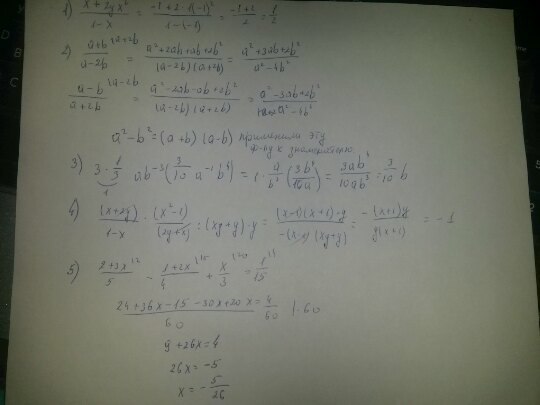 1) (x + 2y x²)/(1-x) = (-1+2·1(-1)²)/(1-(-1)) = (-1+2)/2 = 1/2
2) (a+b)/(a-2b) \a+2b = (a²+2ab+ab+2b²)/((a-2b)(a+2b)) = (a²+3ab+2b²)/(a²-4b²)
(a-b)/(a+2b) \a-2b = (a²-2ab-ab+2b²)/((a-2b)(a+2b)) = (a²-3ab+2b²)/(a²-4b²)
a²-b²=(a+b)(a-b) применили эту
ф-лу к знаменателю
3) 3·1/3 ab⁻³(3/10 a⁻¹b⁴) = 1·a/b³(3b⁴/10a) = 3ab⁴/10ab³ = 3/10 b
4) (x+2y)/(1-x) · (x²-1)/(2y+x) : (xy+y)·y = ((x-1)(x+1)·y)/(-(x-1)(xy+y)) = (-(x+1)y)/(y(x+1)) = -1
5) (2+3x)/5 \12 - (1+2x)/4 \15 + x/3 \20 = 1/15 \4
(24+36x-15-30x+20x)/60 = 4/60 |·60
9+26x=4
26x=-5
x=-5/26